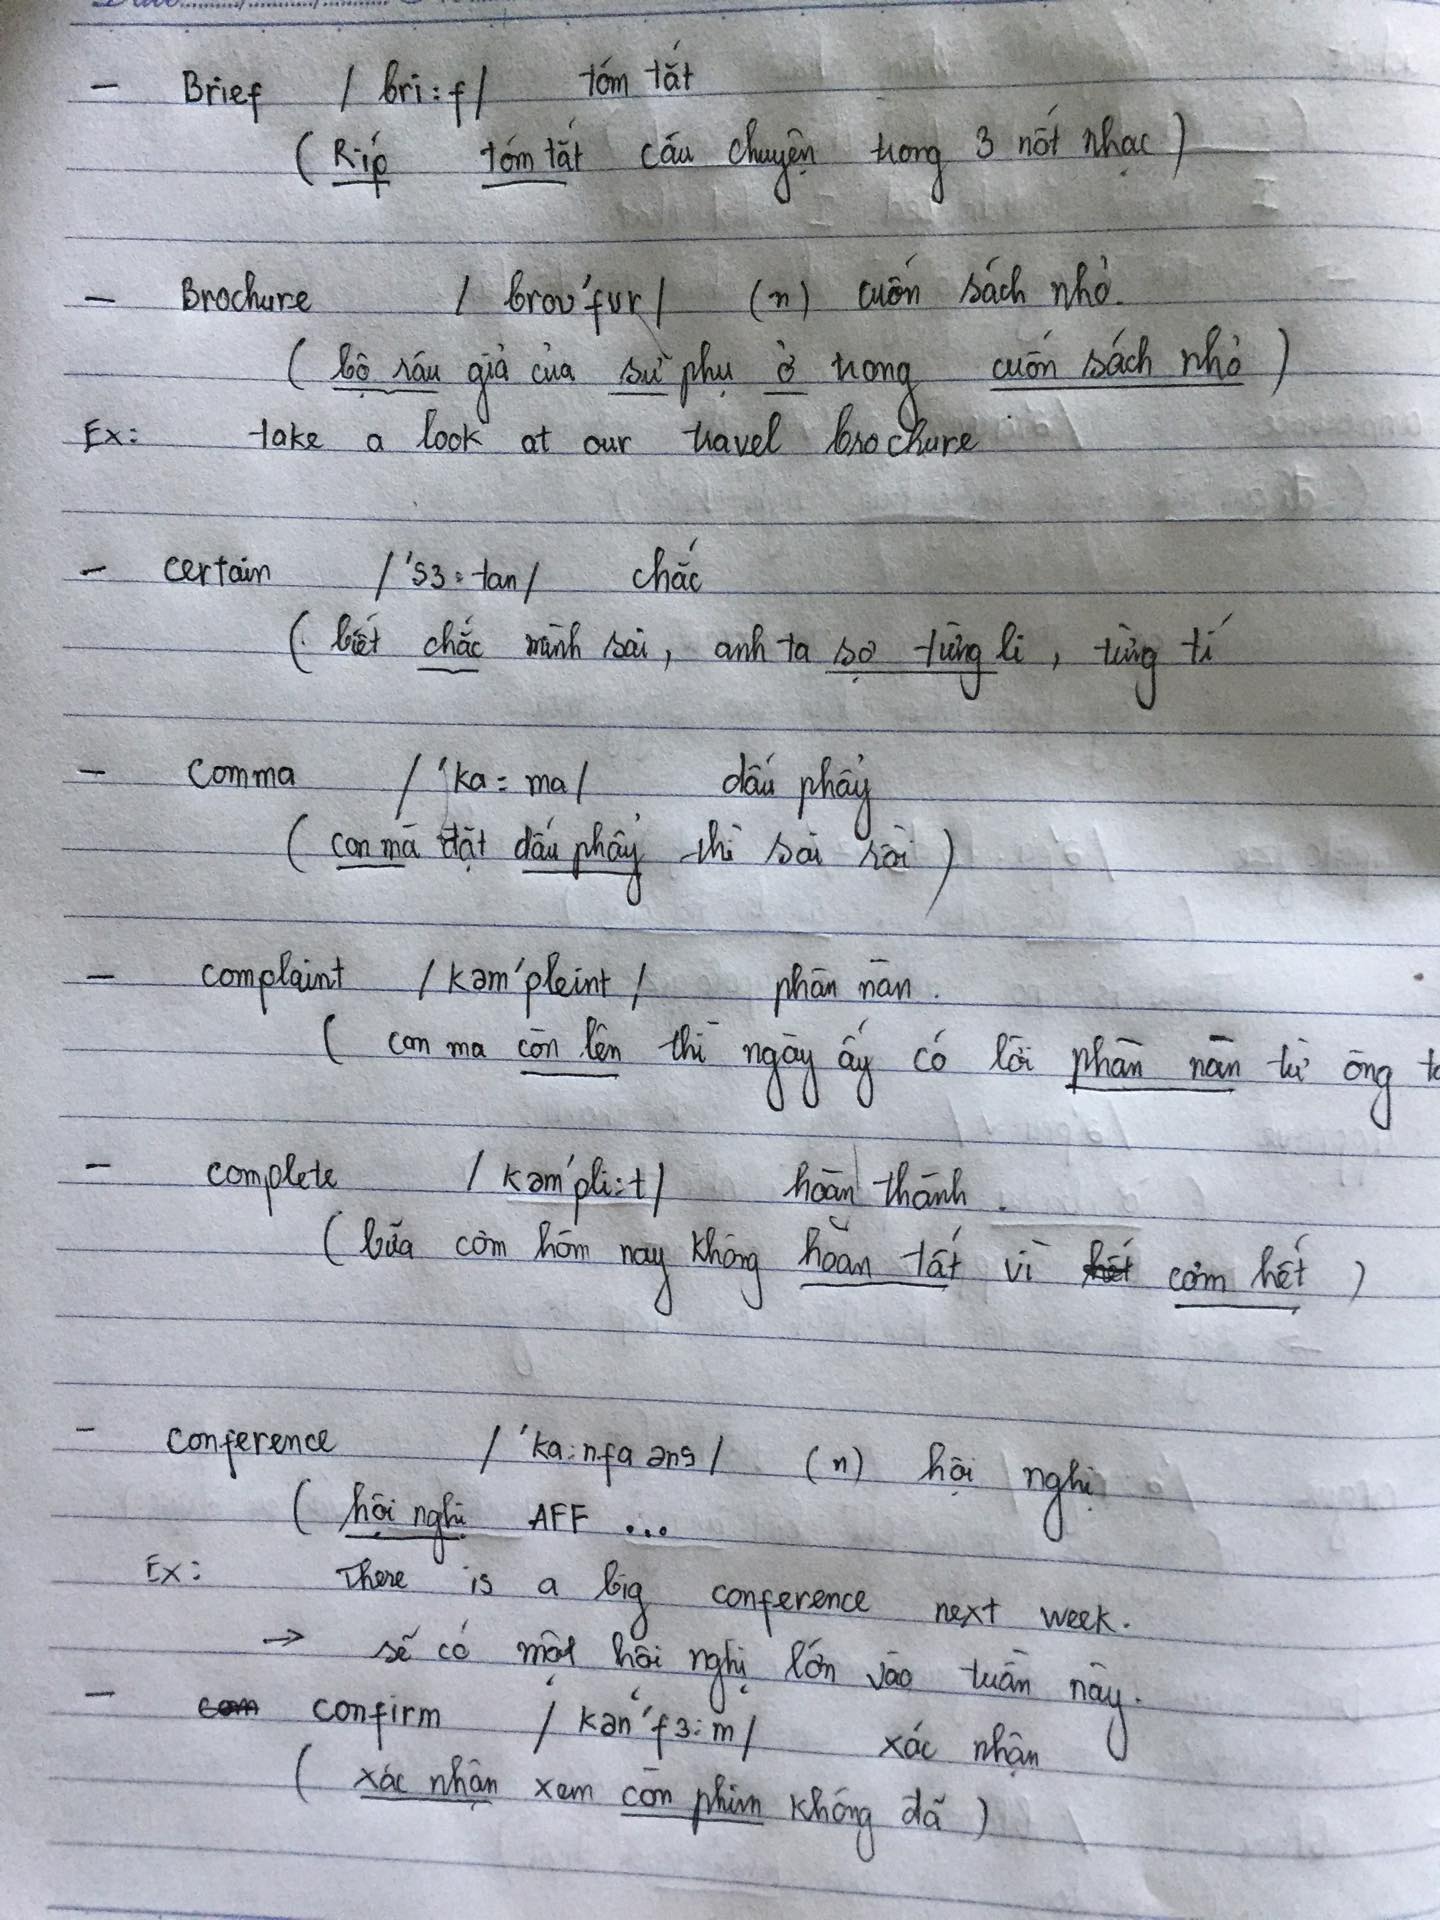 - Brief / bri:f / tóm tắt
( Ríp tóm tắt câu chuyện trong 3 nốt nhạc )
- Brochure / broʊ'ʃʊr / (n) cuốn sách nhỏ.
( bộ râu giả của sư phụ ở trong cuốn sách nhỏ )
Ex: take a look at our travel brochure
- certain / 's3:tan / chắc
( biết chắc mình sai, anh ta sợ từng li, từng tí
- comma / 'ka:ma / dấu phẩy
( con mà đặt dấu phẩy thì sai rồi )
- complaint / kəm'pleint / phàn nàn.
( con ma còn lên thì ngày ấy có lời phàn nàn từ ông
- complete / kəm'pli:t / hoàn thành.
( bữa cơm hôm nay không hoàn tất vì hết cơm hết )
- conference / 'ka:nfaəns / (n) hội nghị
( hội nghị AFF ...
Ex: There is a big conference next week.
→ sẽ có một hội nghị lớn vào tuần này.
- com confirm / kən'f3:m / xác nhận
( xác nhận xem còn phim không đã )